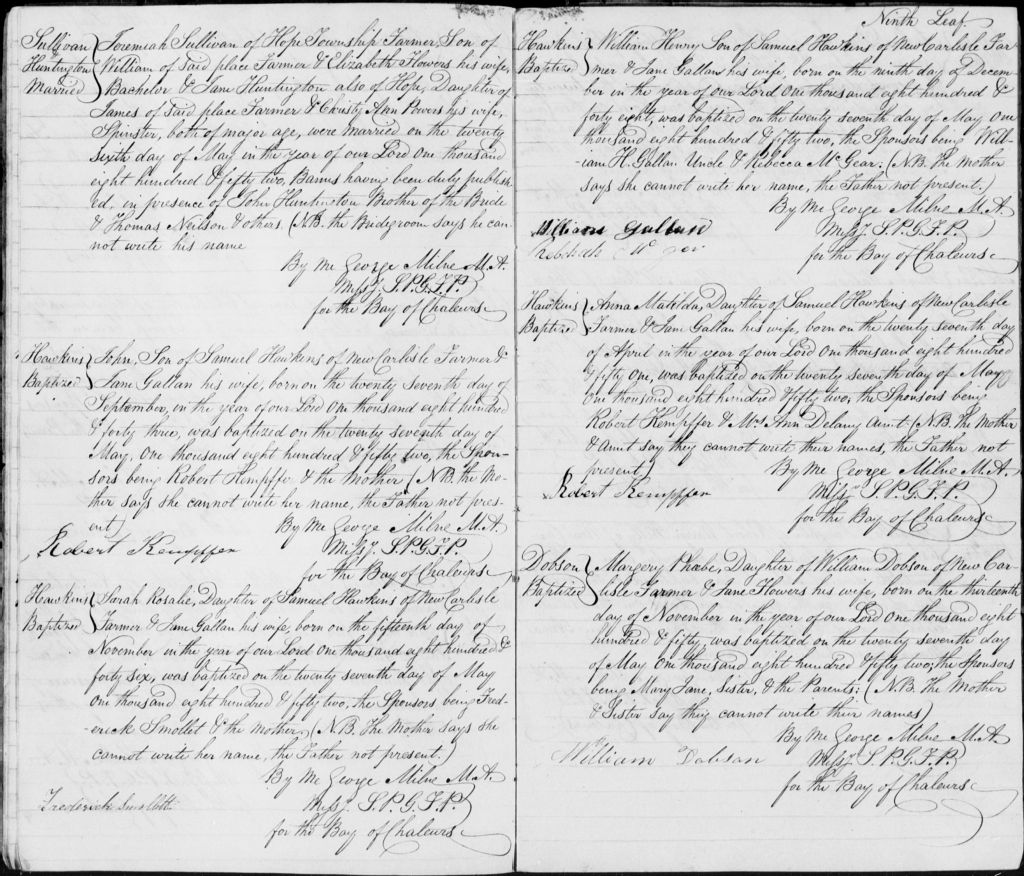 Sullivan
&
Huntington
Married
Jeremiah Sullivan of Hope Township Farmer, Son of
William of Said place Farmer & Elizabeth Flowers his wife,
Bachelor & Jane Huntington also of Hope, Daughter of
James of Said place Farmer & Christy Ann Powers his wife,
Spinster, both of major age, were married on the twenty
sixth day of May in the year of our Lord one thousand
eight hundred & fifty two, Banns having been duly publish-
ed, in presence of John Huntington Brother of the Bride
& Thomas Neilson & others. (N.B. the Bridegroom says he can-
not write his name
By Me George Milne M.A.
Missy. S.P.G.F.P.
for the Bay of Chaleurs
Hawkins
Baptized
John, Son of Samuel Hawkins of New Carlisle Farmer &
Jane Gallan his wife, born on the twenty seventh day of
September, in the year of our Lord One thousand eight hundred
& forty three, was baptized on the twenty seventh day of
May, One thousand eight hundred & fifty two, the Spon-
sors being Robert Kempffer & the Mother (N.B. the Mo-
ther says she cannot write her name, the Father not pres-
ent)
By Me George Milne M.A.
Robert Kempffen
Missy. S.P.G.F.P.
for the Bay of Chaleurs
Hawkins
Baptized
Sarah Rosalie, Daughter of Samuel Hawkins of New Carlisle
Farmer & Jane Gallan his wife, born on the fifteenth day of
November in the year of our Lord One thousand eight hundred &
forty six, was baptized on the twenty seventh day of May
One thousand eight hundred & fifty two, the Sponsors being Fred-
erick Smollet & the Mother, (N.B. The Mother says she
cannot write her name, the Father not present.)
By Me George Milne M.A.
Frederick Smollett
Missy. S.P.G.F.P.
for the Bay of Chaleurs
Ninth Leaf
Hawkins
Baptized
William Henry Son of Samuel Hawkins of New Carlisle Far-
mer & Jane Gallan his wife, born on the ninth day of Decem-
ber in the year of our Lord One thousand eight hundred &
forty eight, was baptized on the twenty seventh day of May One
thousand eight hundred & fifty two, the Sponsors being Will-
iam H. Gallan Uncle & Rebecca McGear. (N.B. The Mother
says she cannot write her name, the Father not present.)
By Me George Milne M.A.
William Gallan
Missy. S.P.G.F.P.
for the Bay of Chaleurs
Hawkins
Baptized
Anna Matilda, Daughter of Samuel Hawkins of New Carlisle
Farmer & Jane Gallan his wife, born on the twenty seventh day
of April in the year of our Lord One thousand eight hundred
& fifty One, was baptized on the twenty seventh day of May
One thousand eight hundred & fifty two, the Sponsors being
Robert Kempffer & Mrs Ann Delany Aunt (N.B. The Mother
& Aunt say they cannot write their names, the Father not
present)
By Me George Milne M.A.
Robert Kempffen
Missy. S.P.G.F.P.
for the Bay of Chaleurs
Dobson
Baptized
Margery Phœbe, Daughter of William Dobson of New Car-
lisle Farmer & Jane Flowers his wife, born on the thirteenth
day of November in the year of our Lord One thousand eight
hundred & fifty, was baptized on the twenty seventh day
of May One thousand eight hundred & fifty two, the Sponsors
being Mary Jane, Sister, & the Parents; (N.B. The Mother
& Sister say they cannot write their names)
By Me George Milne M.A.
William Dobson
Missy. S.P.G.F.P.
for the Bay of Chaleurs